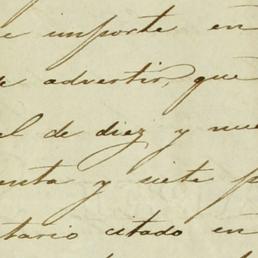 e importe en
e advertir, que
el de diez y nue
enta y siete p
tario citado en